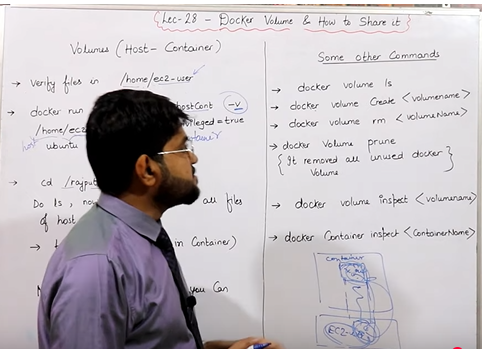 Lec-28 - Docker Volume & How to Share it
Volumes (Host - Container)
→ verify files in /home/ec2-user
→ docker run hostCont -v
/home/ec2 privileged=true
host ubuntu container
→ cd /rajput
Do ls, now all files
of host
→ in Container)
you Can
Some other Commands
→ docker volume ls
→ docker volume Create <volumename>
→ docker volume rm <volumeName>
→ docker Volume prune
{ It removed all unused docker }
Volume
→ docker volume inspect <volumename>
→ docker Container inspect <ContainerName>
container
EC2-